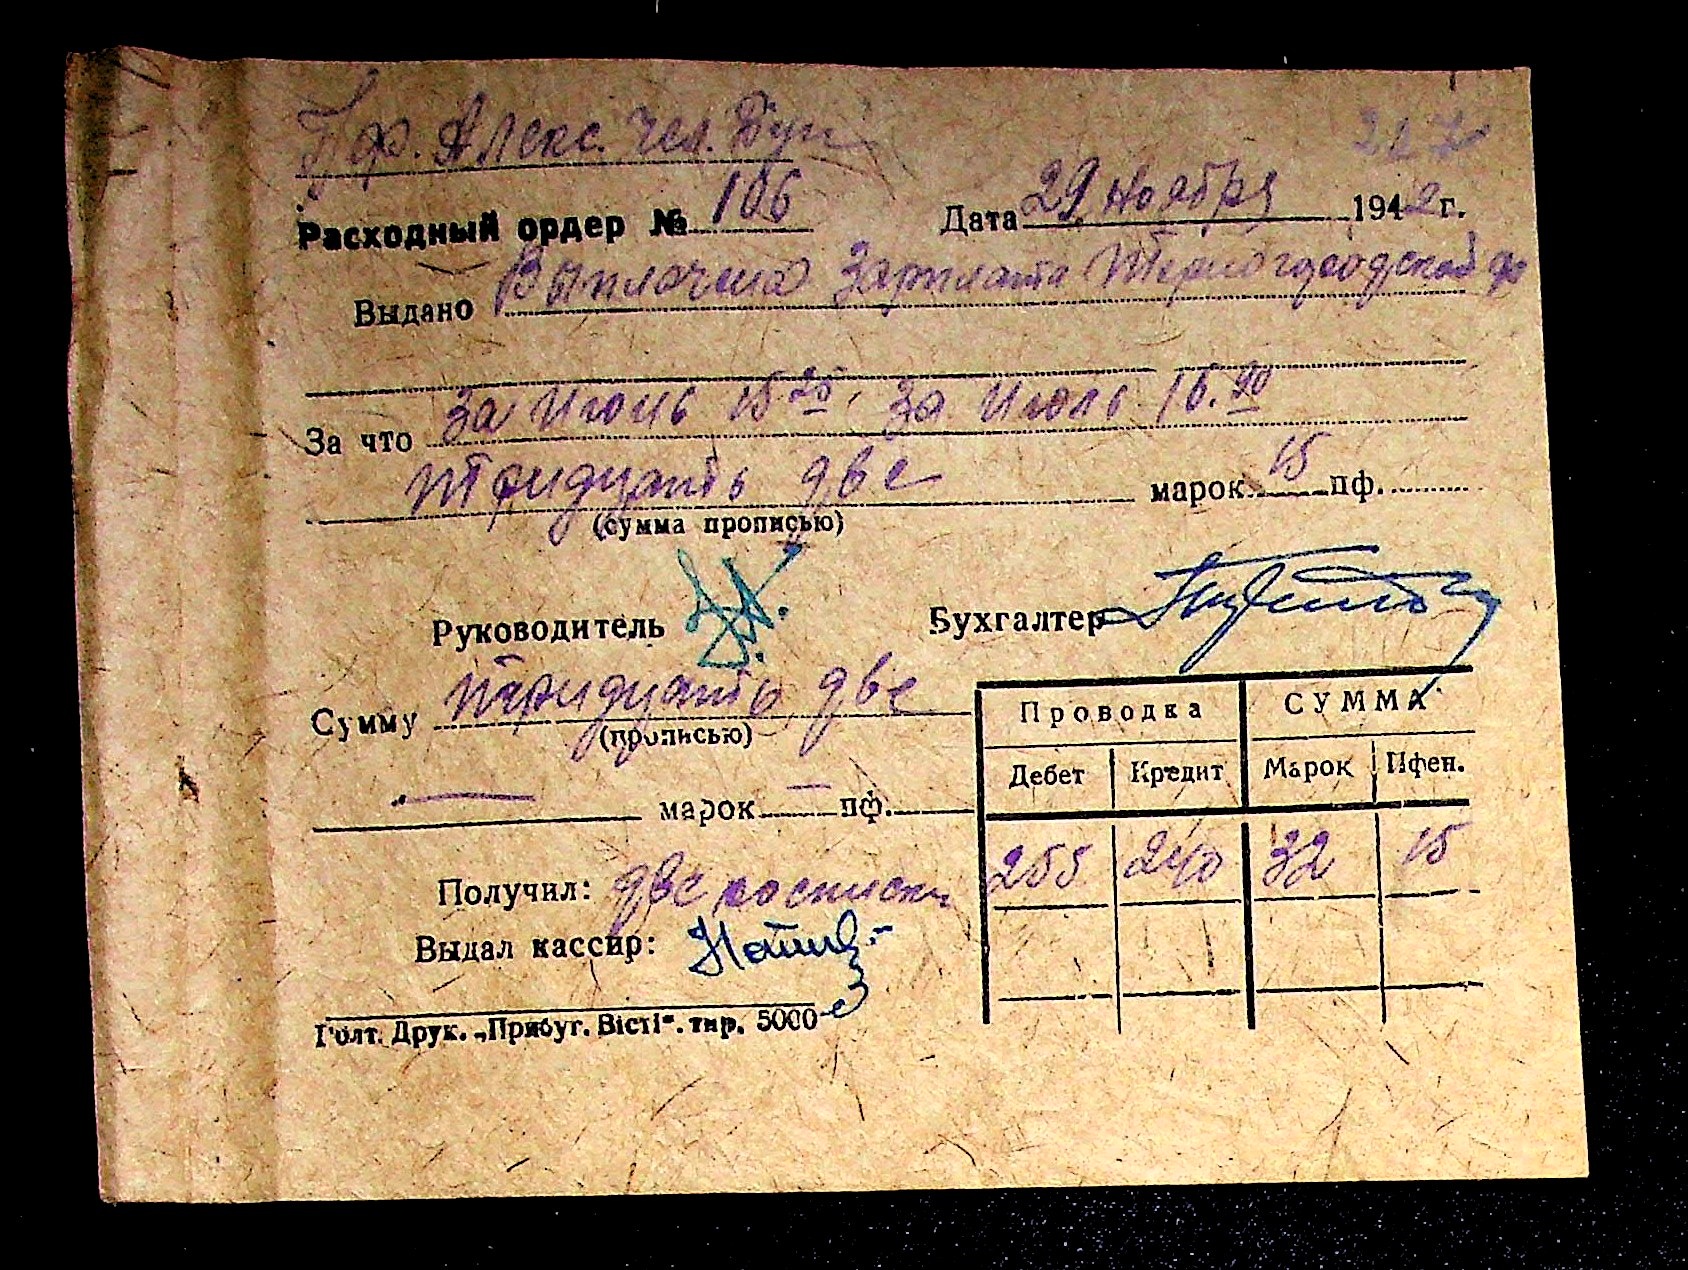 227
Пф. Алекс. Чел. Бун
Расходный ордер № 106 Дата 29 Ноября 1942 г.
Выдано Выплачено Зарплата
За что За Июнь 15 25, За Июль 16.90
тридцать две марок 15 пф.
(сумма прописью)
Руководитель Бухгалтер
Сумму тридцать две
(прописью)
— марок — пф.
Проводка СУММА
Дебет Кредит Марок Пфен.
255 240 32 15
Получил: две росписи
Выдал кассир:
Голт. Друк. „Прибуг. Вісті“. тир. 5000